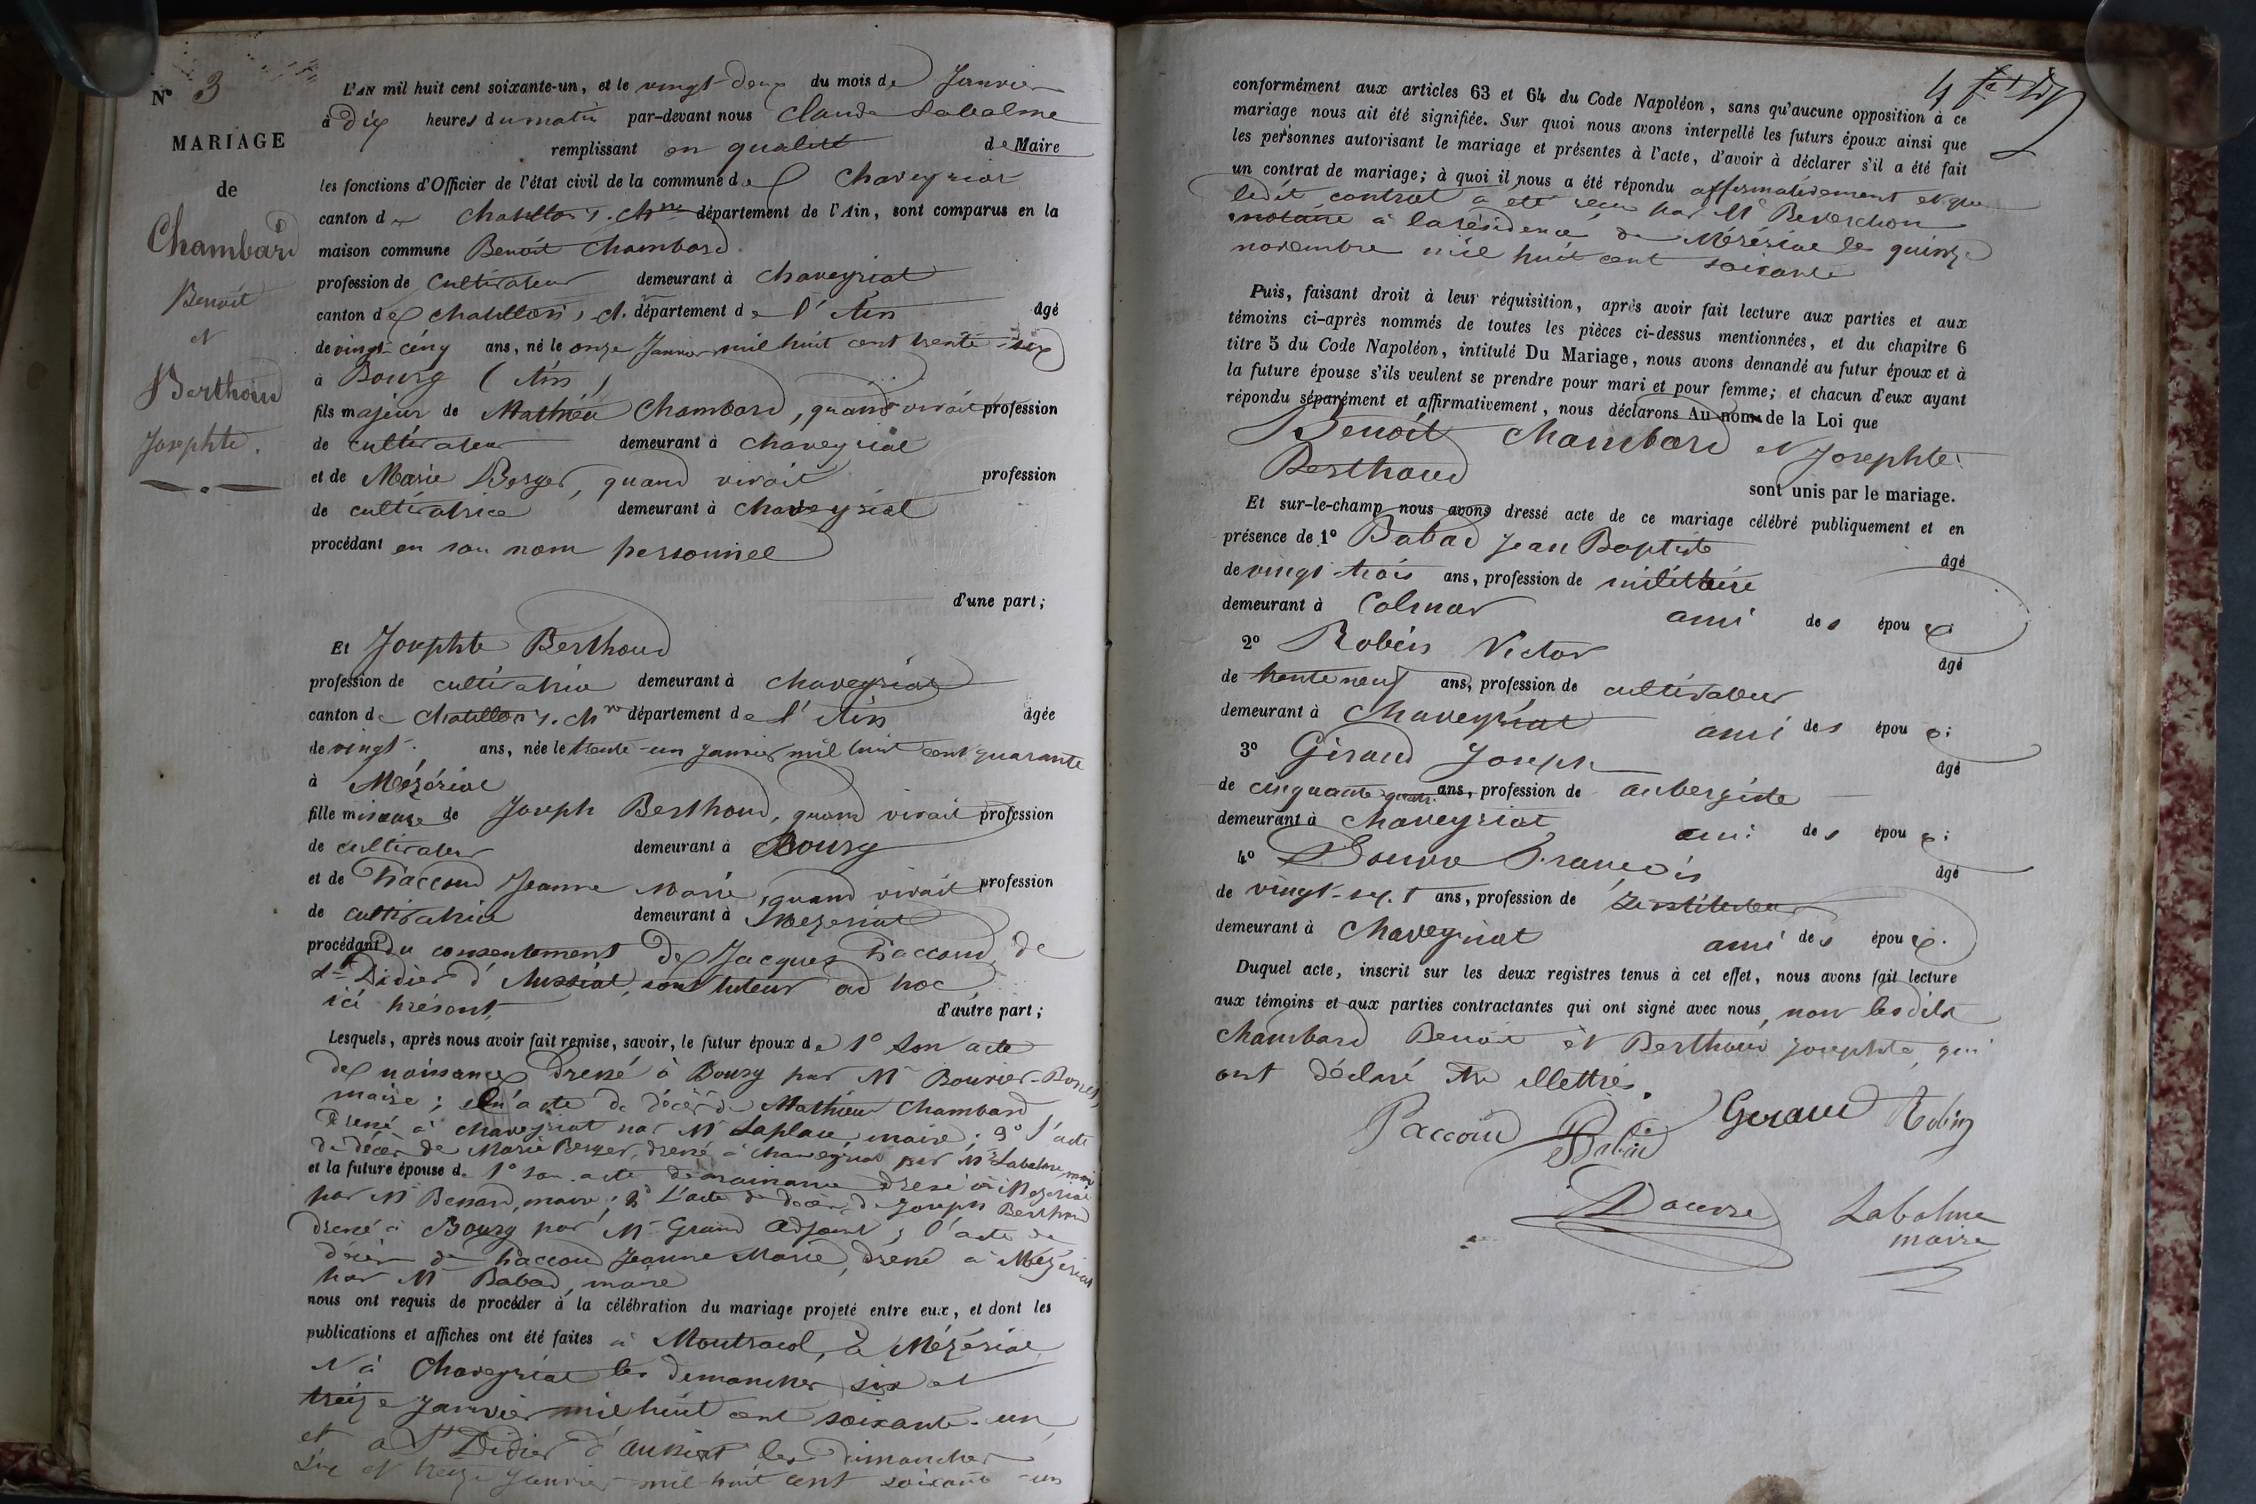 N° 3
MARIAGE
de
Chambard
Benoit
et
Berthoud
Josephte.
L'AN mil huit cent soixante-un, et le vingt-deux du mois de Janvier
à dix heures du matin par-devant nous Claude Labalme
remplissant en qualité de Maire
les fonctions d'Officier de l'état civil de la commune de Chaveyriat
canton de Chatillon s. Chne département de l'Ain, sont comparus en la
maison commune Benoit Chambard
profession de cultivateur demeurant à Chaveyriat
canton de Chatillon s. ch. département de l'Ain âgé
de vingt-cinq ans, né le onze Janvier mil huit cent trente-six
à Bourg (Ain)
fils majeur de Mathieu Chambard, quand vivait profession
de cultivateur demeurant à Chaveyriat
et de Marie Berger, quand vivait profession
de cultivatrice demeurant à Chaveyriat
procédant en son nom personnel
d'une part;
Et Josephte Berthoud
profession de cultivatrice demeurant à Chaveyriat
canton de Chatillon s. Chne département de l'Ain âgée
de vingt ans, née le trente-un janvier mil huit cent quarante
à Mézériat
fille mineure de Joseph Berthoud, quand vivait profession
de cultivateur demeurant à Bourg
et de Paccoud Jeanne Marie, quand vivait profession
de cultivatrice demeurant à Mézériat
procédant du consentement de Jacques Paccoud, de
St Didier d'Aussiat, son tuteur ad hoc
ici présent, d'autre part;
Lesquels, après nous avoir fait remise, savoir, le futur époux de 1° son acte
de naissance dressé à Bourg par Mr Bouvier-
maire; l'acte de décès de Mathieu Chambard
dressé à Chaveyriat par Mr Laplace, maire; 3° l'acte
de décès de Marie Berger, dressé à Chaveyriat par Mr Labalme maire
et la future épouse de 1° son acte de naissance dressé à Mézériat
par Mr Benard, maire; 2° L'acte de décès de Joseph Berthoud
dressé à Bourg par Mr Grand adjoint; l'acte de
décès de Paccoud Jeanne Marie, dressé à Mézériat
par Mr Babad, maire
nous ont requis de procéder à la célébration du mariage projeté entre eux, et dont les
publications et affiches ont été faites à Montracol, à Mézériat,
et à Chaveyriat les dimanches six et
treize Janvier mil huit cent soixante-un,
et à St Didier d'Aussiat les dimanches
six et treize janvier mil huit cent soixante-un
4
conformément aux articles 63 et 64 du Code Napoléon, sans qu'aucune opposition à ce
mariage nous ait été signifiée. Sur quoi nous avons interpellé les futurs époux ainsi que
les personnes autorisant le mariage et présentes à l'acte, d'avoir à déclarer s'il a été fait
un contrat de mariage; à quoi il nous a été répondu affirmativement et que
ledit contrat a été reçu par Mr Beverchon
notaire à la résidence de Mézériat le quinze
novembre mil huit cent soixante
Puis, faisant droit à leur réquisition, après avoir fait lecture aux parties et aux
témoins ci-après nommés de toutes les pièces ci-dessus mentionnées, et du chapitre 6
titre 5 du Code Napoléon, intitulé Du Mariage, nous avons demandé au futur époux et à
la future épouse s'ils veulent se prendre pour mari et pour femme; et chacun d'eux ayant
répondu séparément et affirmativement, nous déclarons Au nom de la Loi que
Benoit Chambard et Josephte
Berthoud
sont unis par le mariage.
Et sur-le-champ nous avons dressé acte de ce mariage célébré publiquement et en
présence de 1° Babad Jean Baptiste âgé
de vingt-trois ans, profession de militaire
demeurant à Colmar ami des époux
2° Robin Victor âgé
de trente neuf ans, profession de cultivateur
demeurant à Chaveyriat ami des époux;
3° Giraud Joseph âgé
de cinquante quatre ans, profession de aubergiste
demeurant à Chaveyriat ami des époux;
4° Douvre François âgé
de vingt-sept ans, profession de Instituteur
demeurant à Chaveyriat ami des époux.
Duquel acte, inscrit sur les deux registres tenus à cet effet, nous avons fait lecture
aux témoins et aux parties contractantes qui ont signé avec nous, non les dits
Chambard Benoit et Berthoud Josephte, qui
ont déclaré être illettrés.
Paccoud Babad Giraud Robin
Douvre Labalme
maire